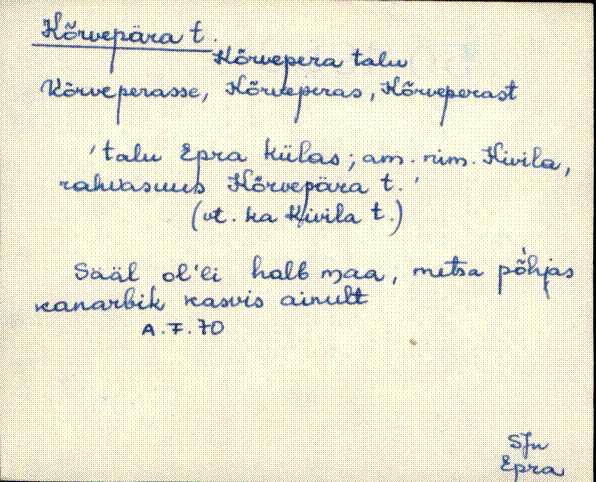 Kõrvepära t.
Kõrvepera talu
Kõrveperasse, Kõrveperas, Kõrveperast
'talu Epra külas; am. nim. Kivila,
rahvasuus Kõrvepära t.'
(vt. ka Kivila t.)
Sääl ol'li halb maa, metsa põhjas
kanarbik kasvis ainult
A.F. 70
SJn
Epra